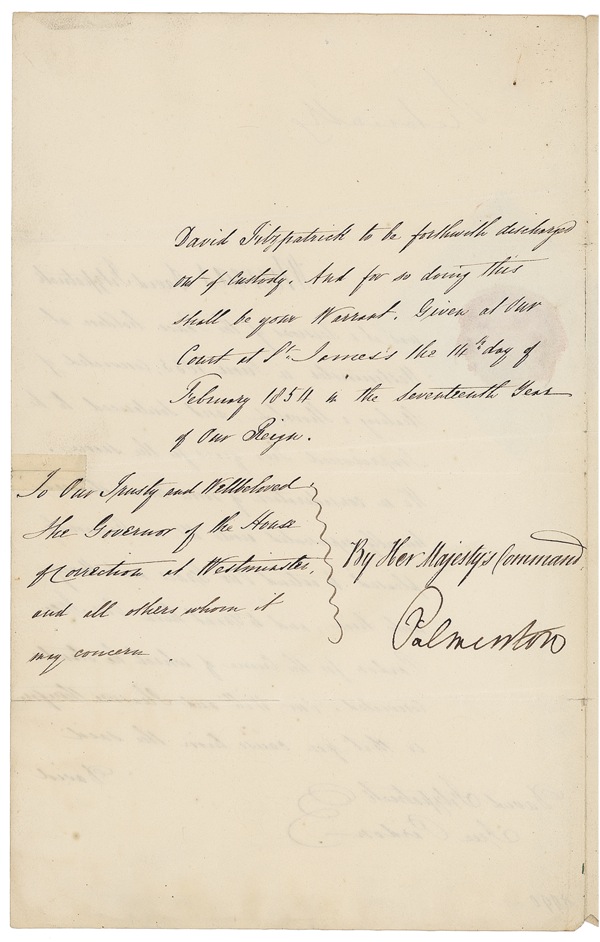 David Fitzpatrick to be forthwith discharged
out of Custody. And for so doing this
shall be your Warrant. Given at Our
Court at St. James's the 14th day of
February 1854 in the Seventeenth Year
of Our Reign.
To Our Trusty and Wellbeloved
the Governor of the House
of Correction at Westminster,
and all others whom it
may concern.
By Her Majesty's Command
Palmerston